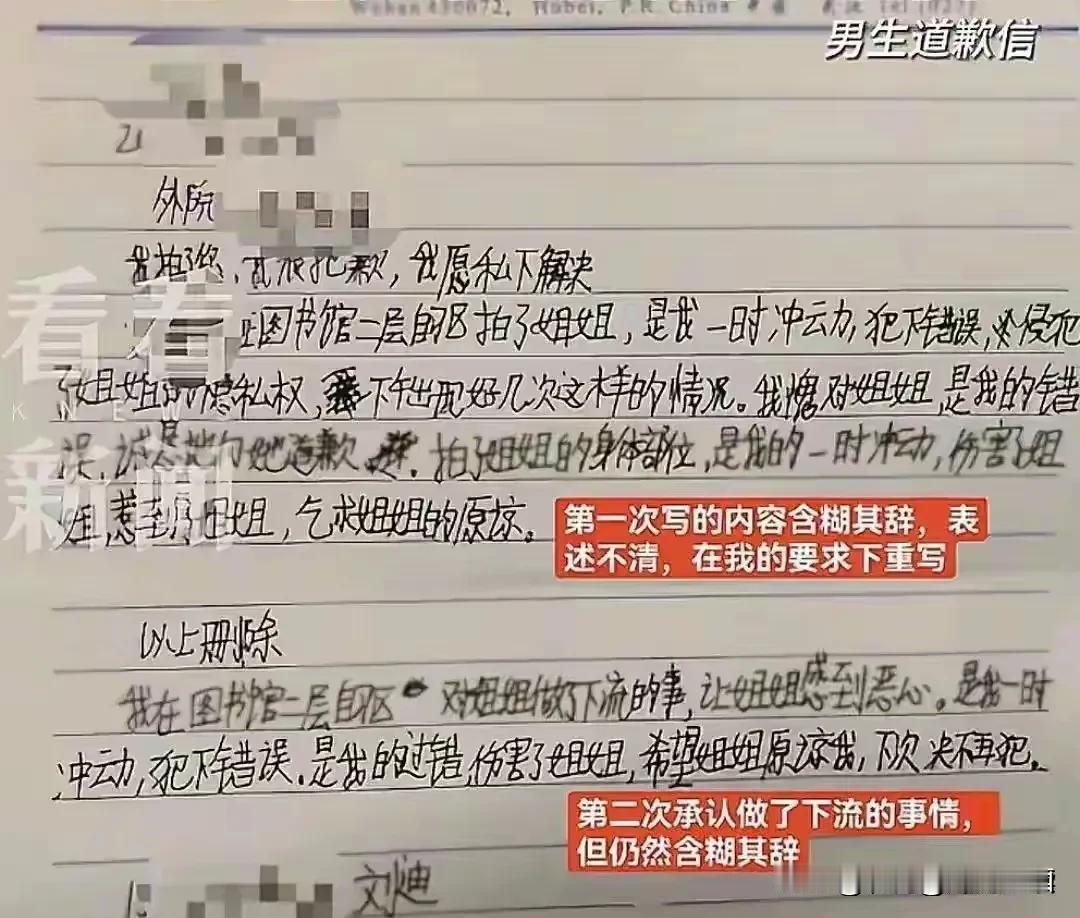 Wuhan 430072, Hubei, P.R. China
男生道歉信
外院
我愿私下解决
图书馆二层自区拍了姐姐，是我一时冲动，犯下错误，侵犯
了姐姐的隐私权，下午出现好几次这样的情况。我愧对姐姐，是我的错
误，诚恳地向她道歉，拍了姐姐的身体部位，是我的一时冲动，伤害了姐
姐，惹到了姐姐，乞求姐姐的原谅。
第一次写的内容含糊其辞，表
述不清，在我的要求下重写
以上删除
我在图书馆二层自区 对姐姐做了下流的事，让姐姐感到恶心。是我一时
冲动，犯下错误，是我的过错，伤害了姐姐，希望姐姐原谅我，下次决不再犯。
第二次承认做了下流的事情，
但仍然含糊其辞
看看
KNEWS
新闻